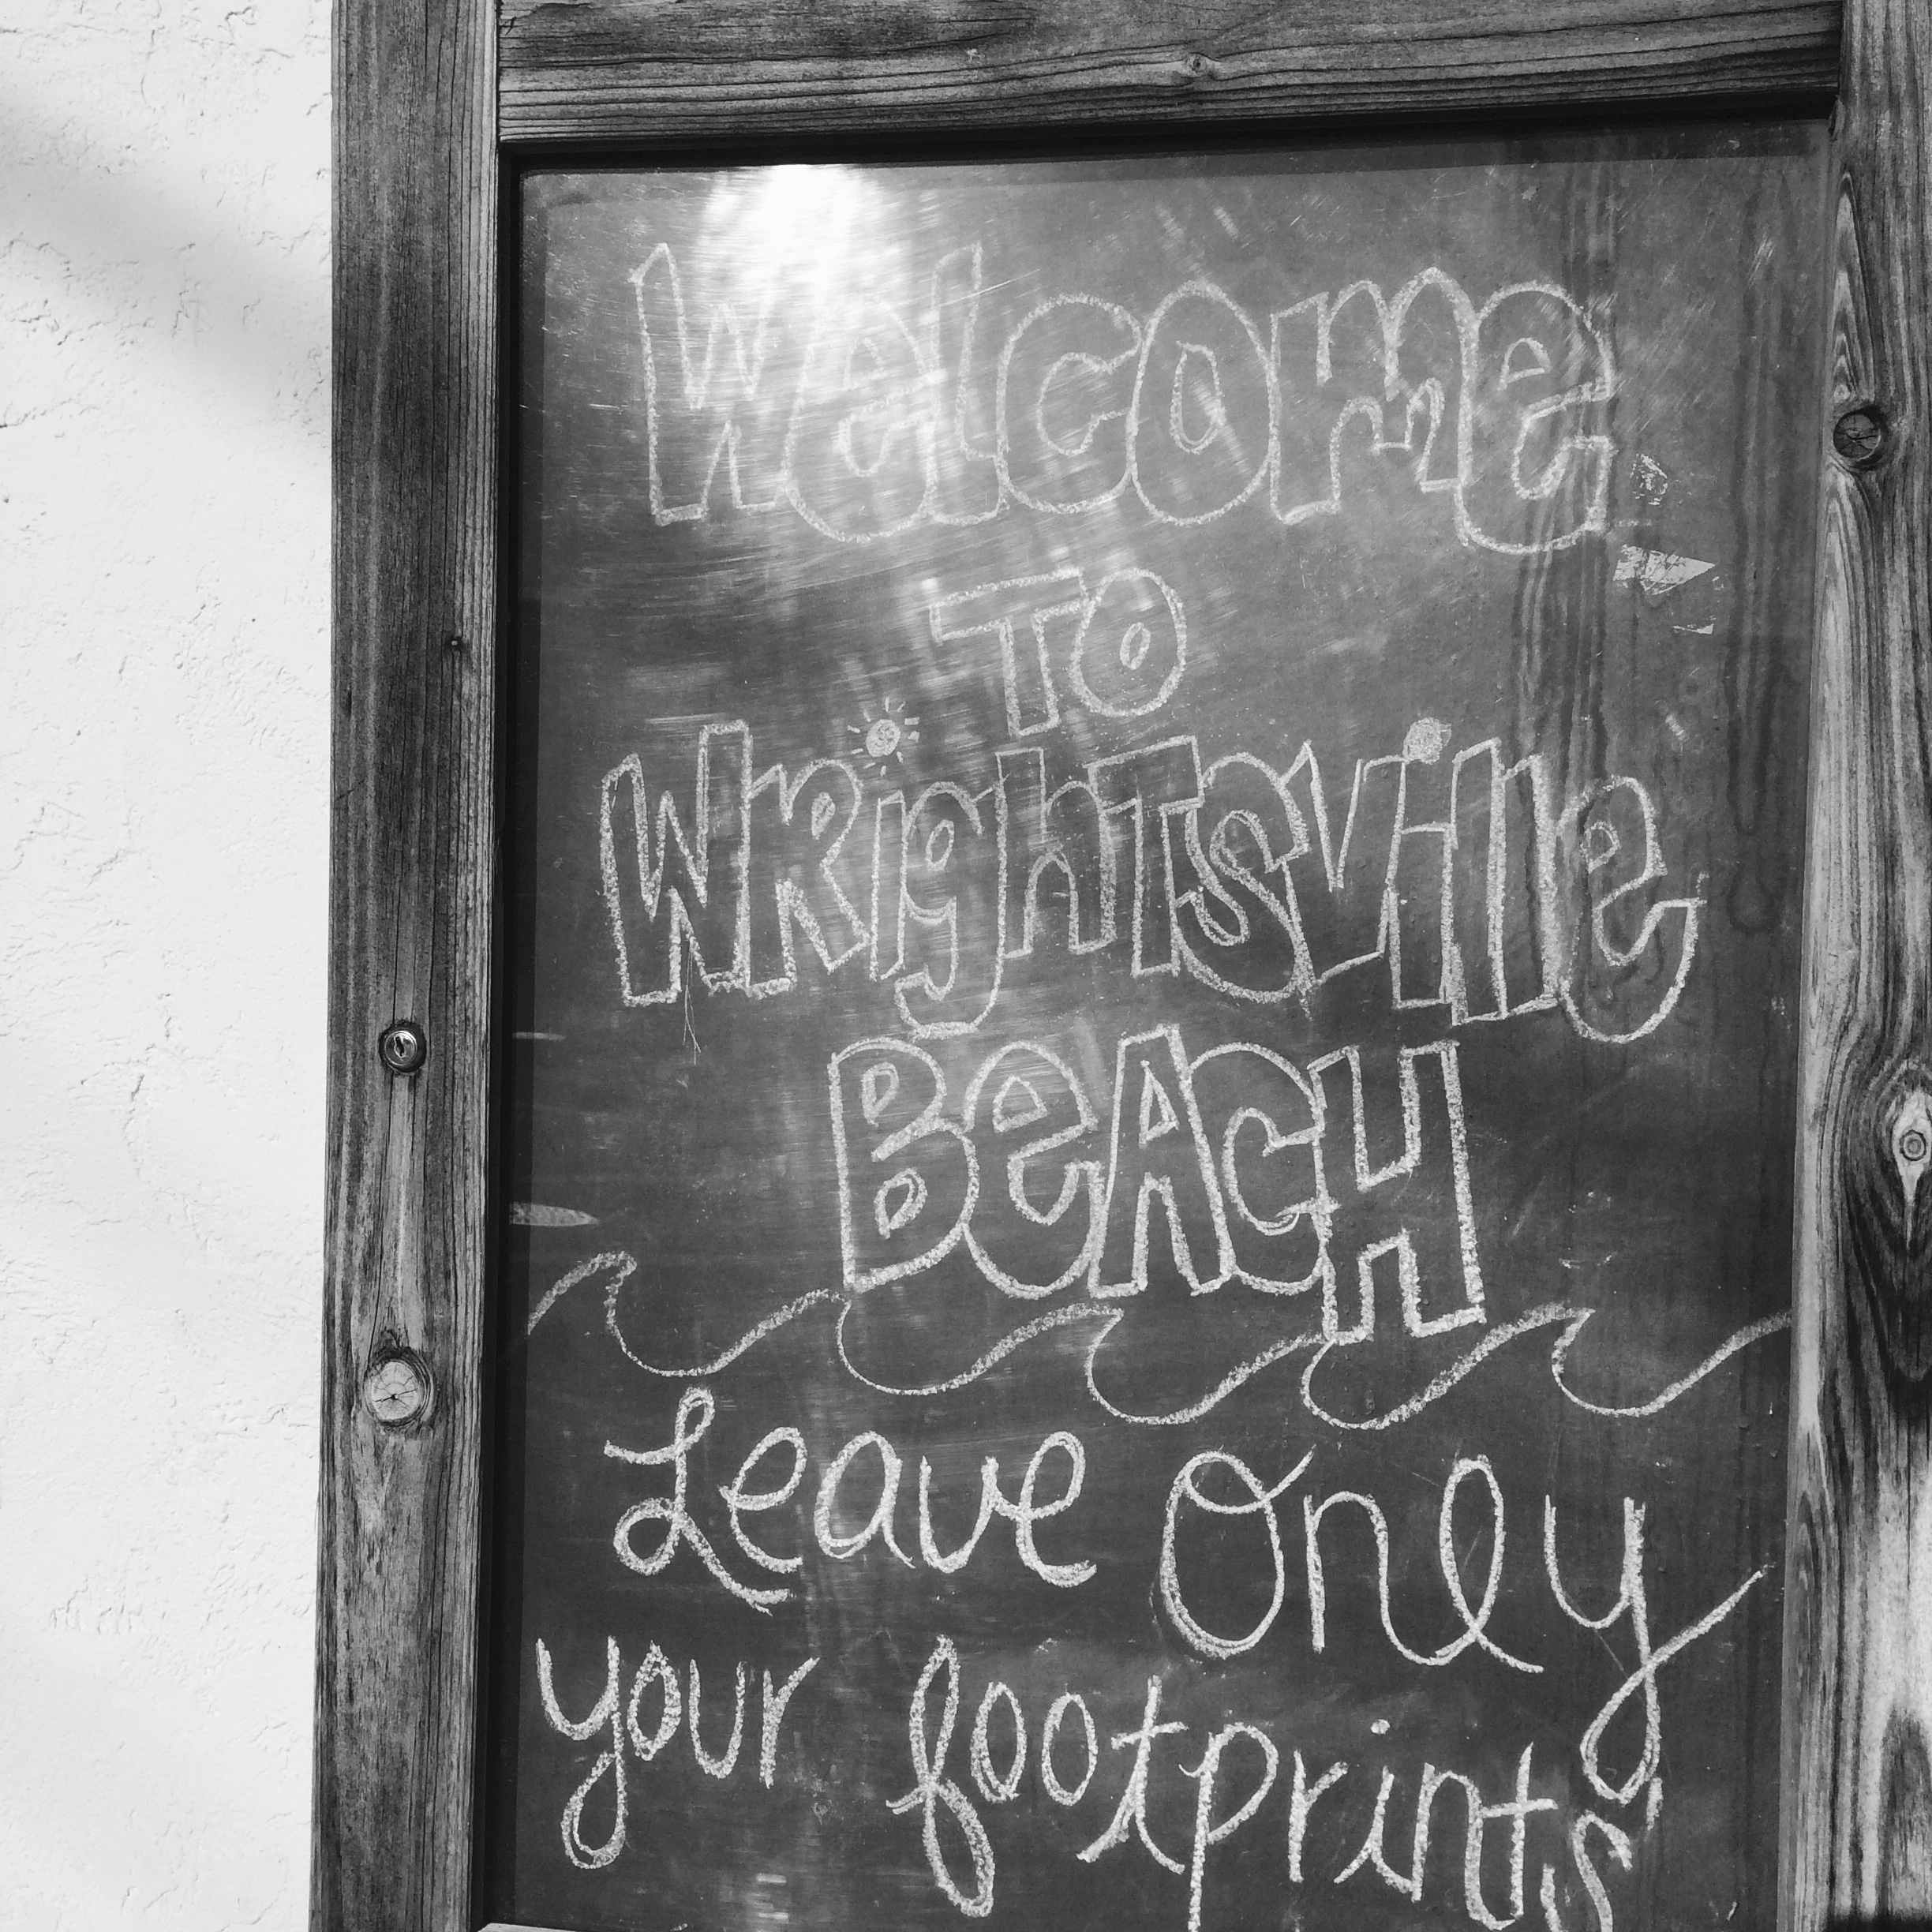 Welcome
TO
WRightsville
BEACH
Leave Only
your footprints